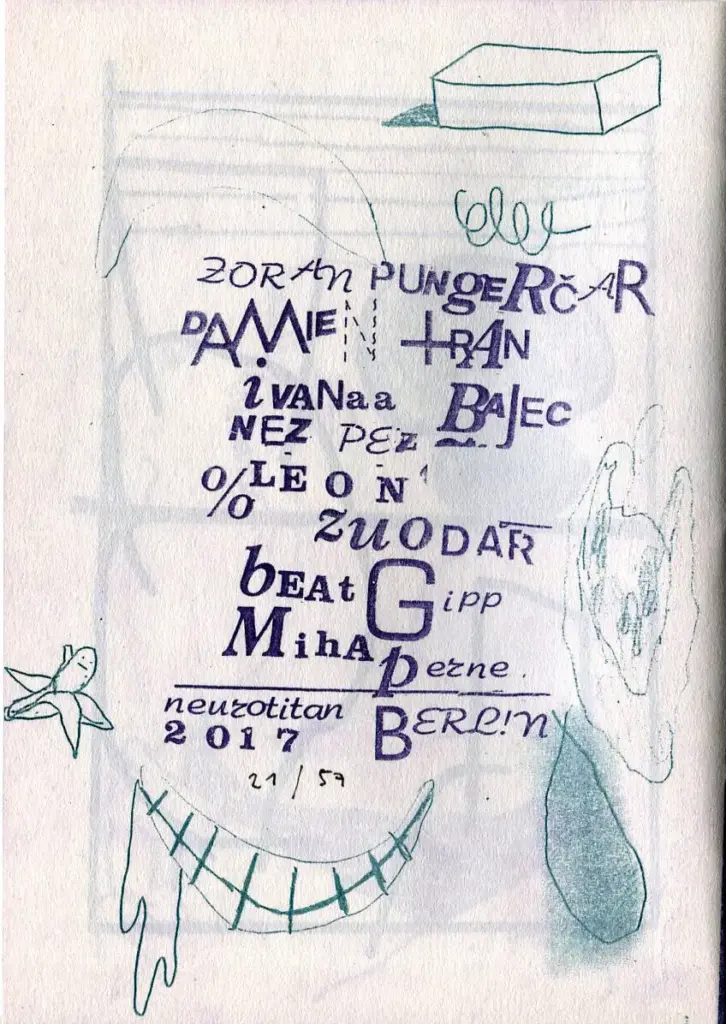 ZORAN PUNGERČAR
DAMIEN TRAN
iVANaa BAJEC
NEZ PEZ
% LEON
ZUODAR
bEAt Gipp
MihA perne.
neurotitan BERL!N
2017
21/57